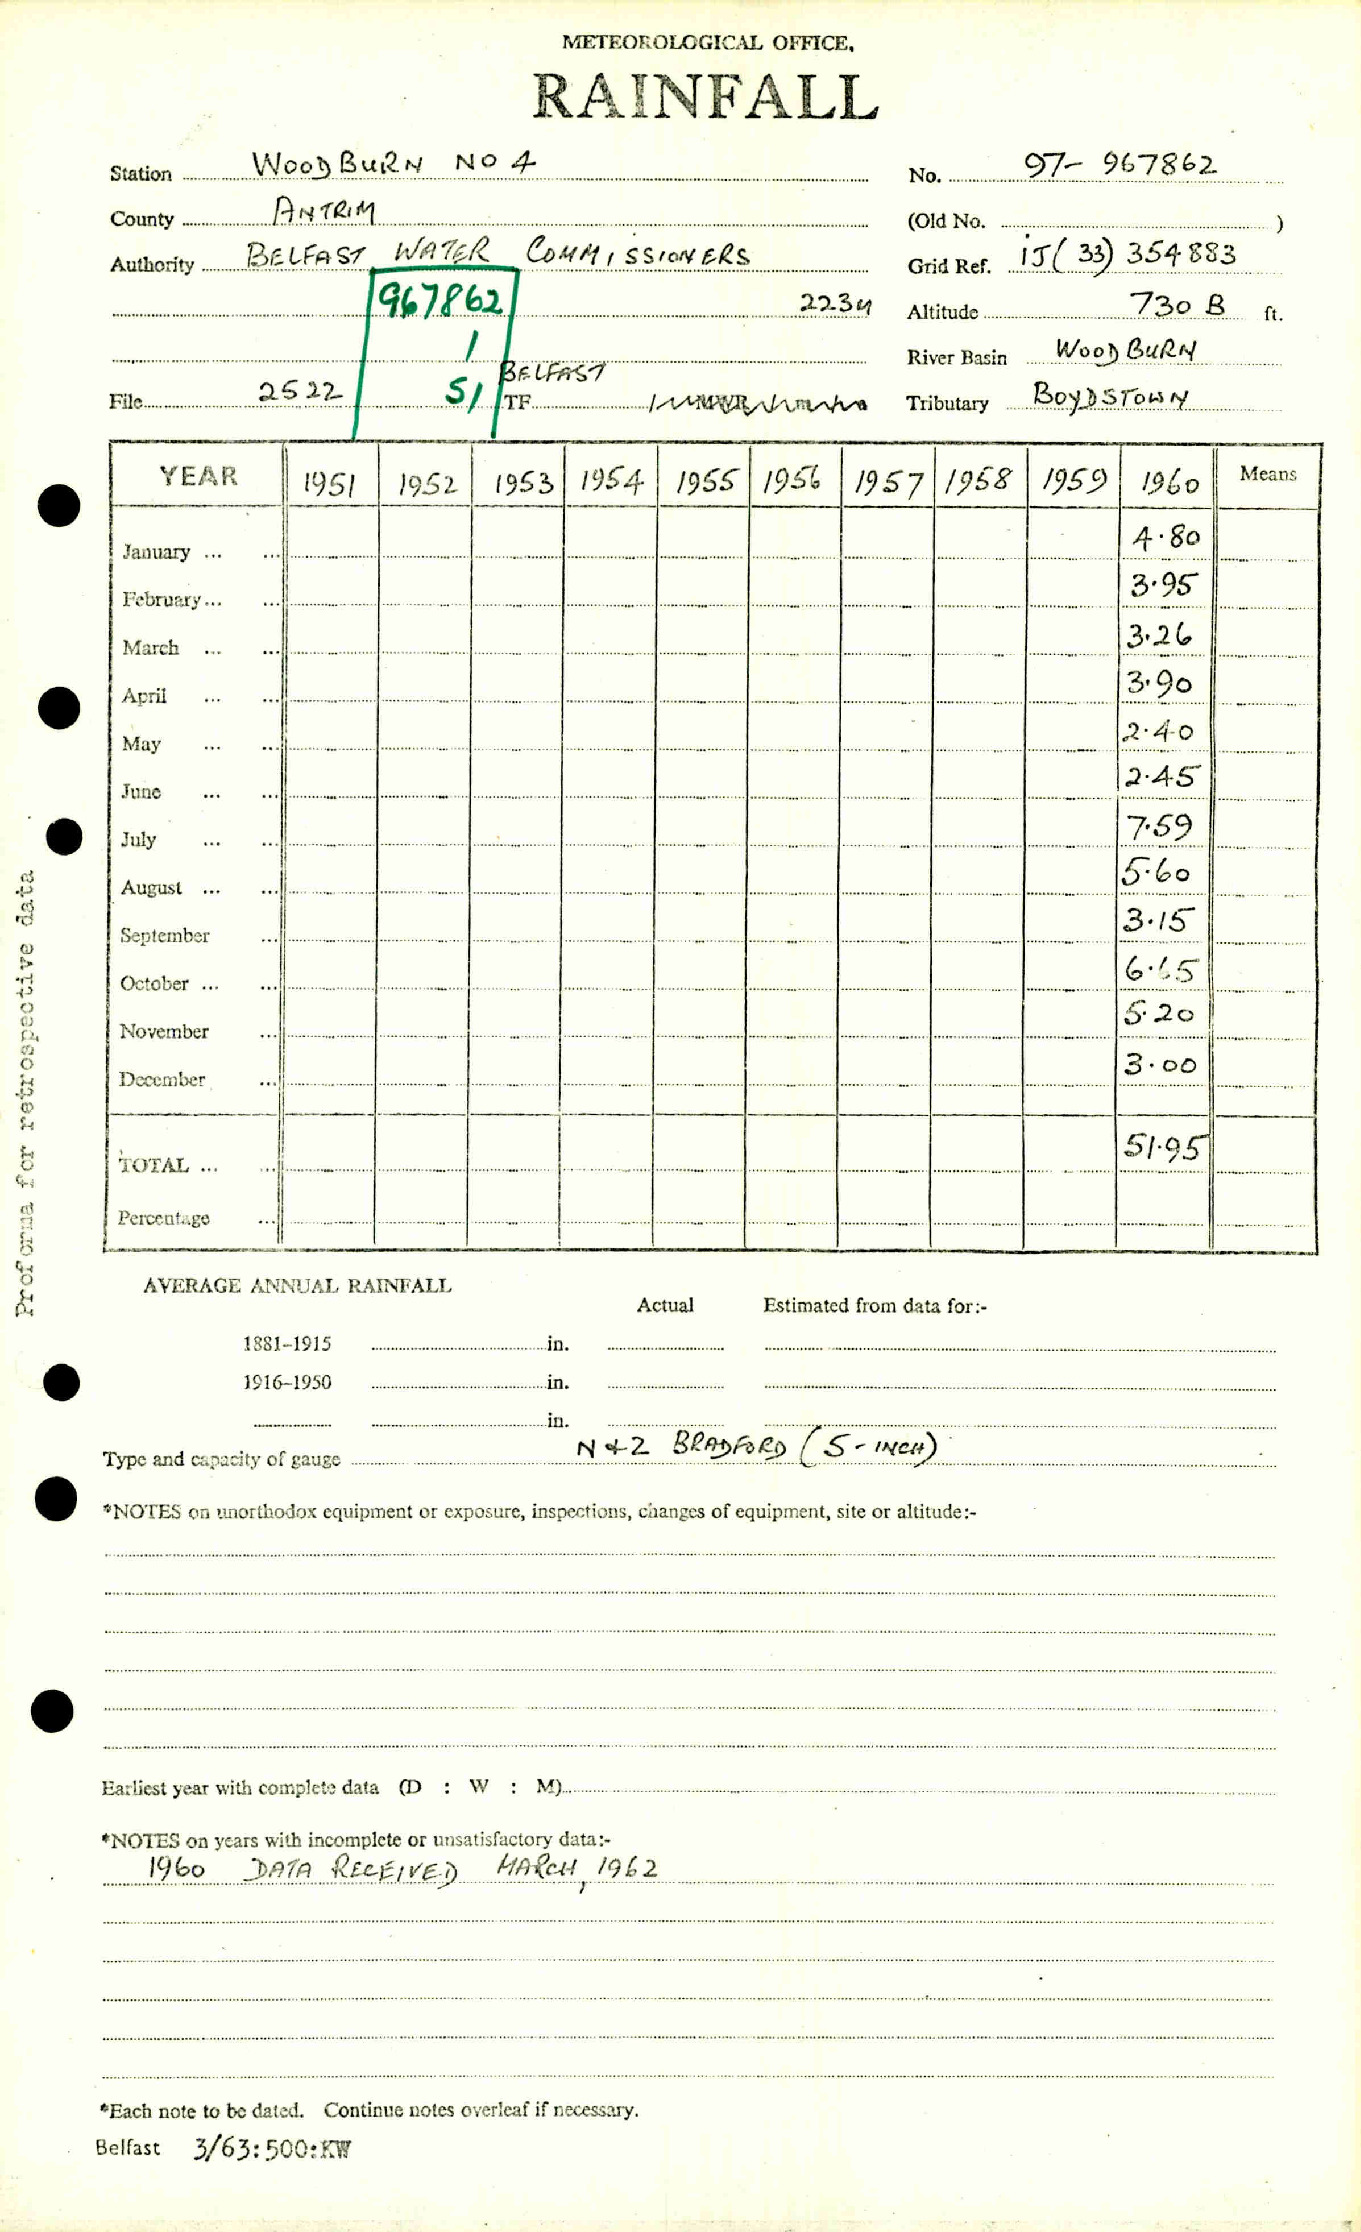 METEOROLOGICAL OFFICE,
RAINFALL
Station WOODBURN NO 4 No. 97- 967862
County ANTRIM (Old No. )
Authority BELFAST WATER COMMISSIONERS Grid Ref. iJ(33) 354883
967862 Altitude 730 B ft.
1 River Basin WOODBURN
BELFAST
File 2522 51 TF Tributary BOYDSTOWN
YEAR 1951 1952 1953 1954 1955 1956 1957 1958 1959 1960 Means
January ... ... 4.80
February ... ... 3.95
March ... ... 3.26
April ... ... 3.90
May ... ... 2.40
June ... ... 2.45
July ... ... 7.59
August ... ... 5.60
September ... 3.15
October ... ... 6.65
November ... 5.20
December ... 3.00
TOTAL ... ... 51.95
Percentage ...
Proforma for retrospective data
AVERAGE ANNUAL RAINFALL
Actual Estimated from data for:-
1881–1915 in.
1916–1950 in.
in.
Type and capacity of gauge N & Z BRADFORD (5-INCH)
*NOTES on unorthodox equipment or exposure, inspections, changes of equipment, site or altitude:-
Earliest year with complete data (D : W : M)
*NOTES on years with incomplete or unsatisfactory data:-
1960 DATA RECEIVED MARCH, 1962
*Each note to be dated. Continue notes overleaf if necessary.
Belfast 3/63:500:KW